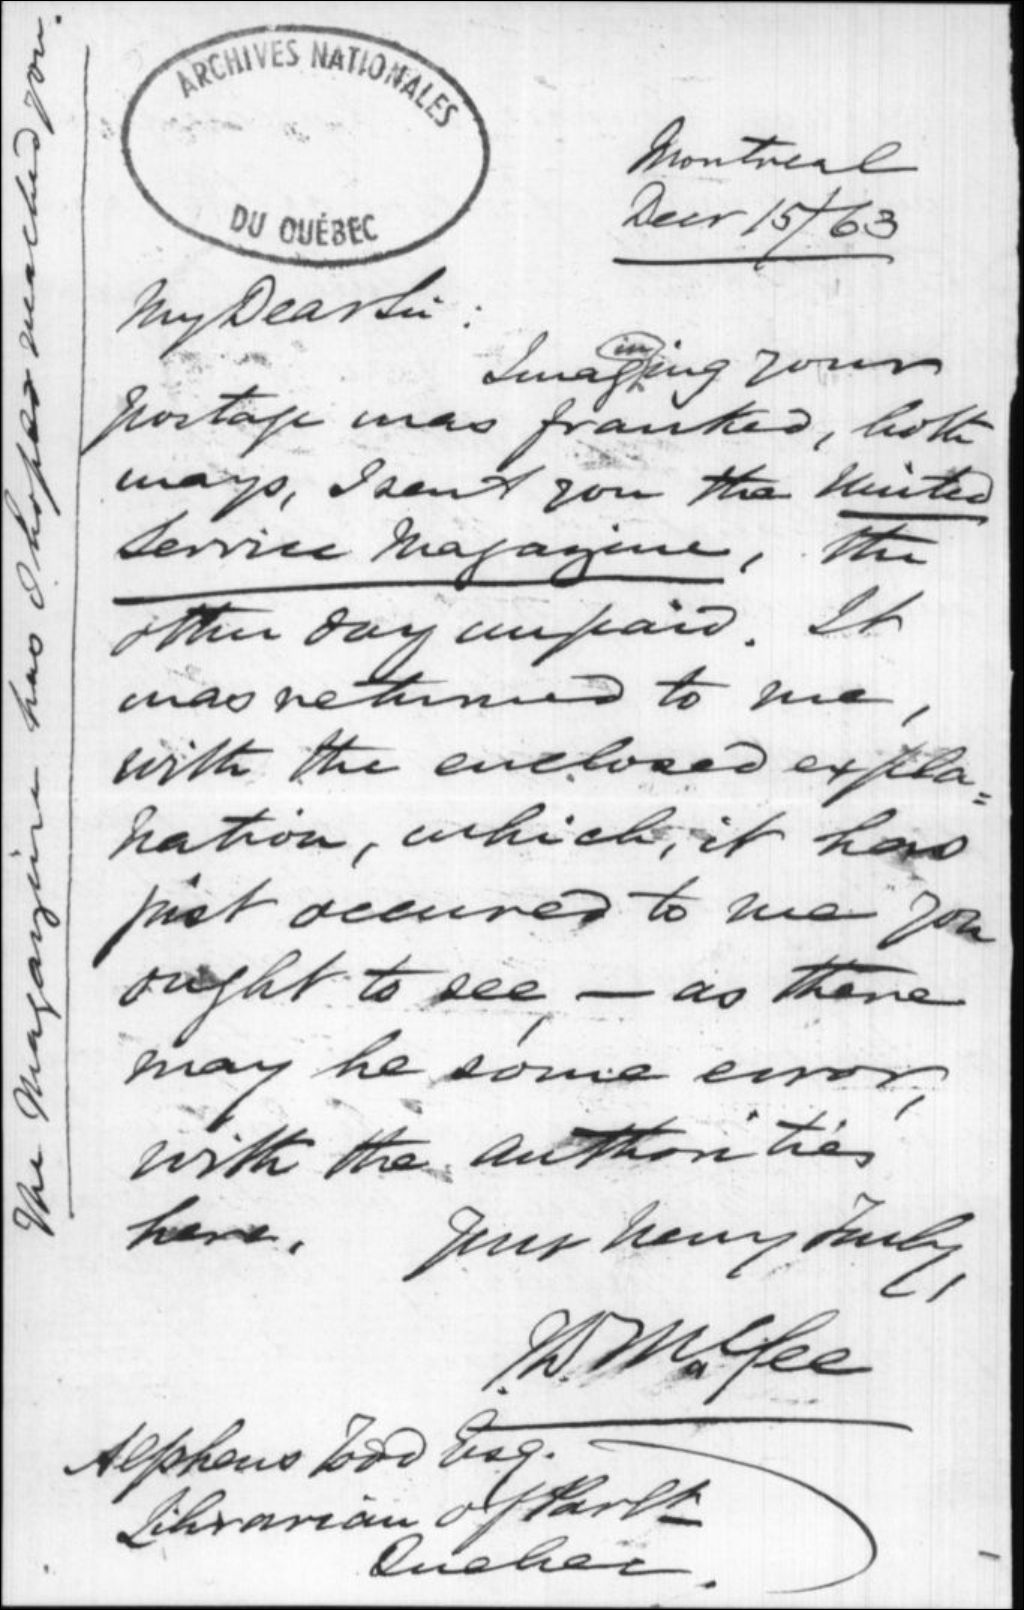 ARCHIVES NATIONALES
DU QUÉBEC
Montreal
Decr 15/63
My Dear Sir:
Imagining your
postage was franked, both
ways, I sent you the United
Service Magazine, the
other day unpaid. It
was returned to me,
with the enclosed expla=
nation, which, it has
just occured to me you
ought to see, — as there
may be some error,
with the authorities
here. Yours Very Truly,
T.D. McGee
Alpheus Todd Esq.
Librarian of Parlt
Quebec.
The Magazine has I hope reached you.